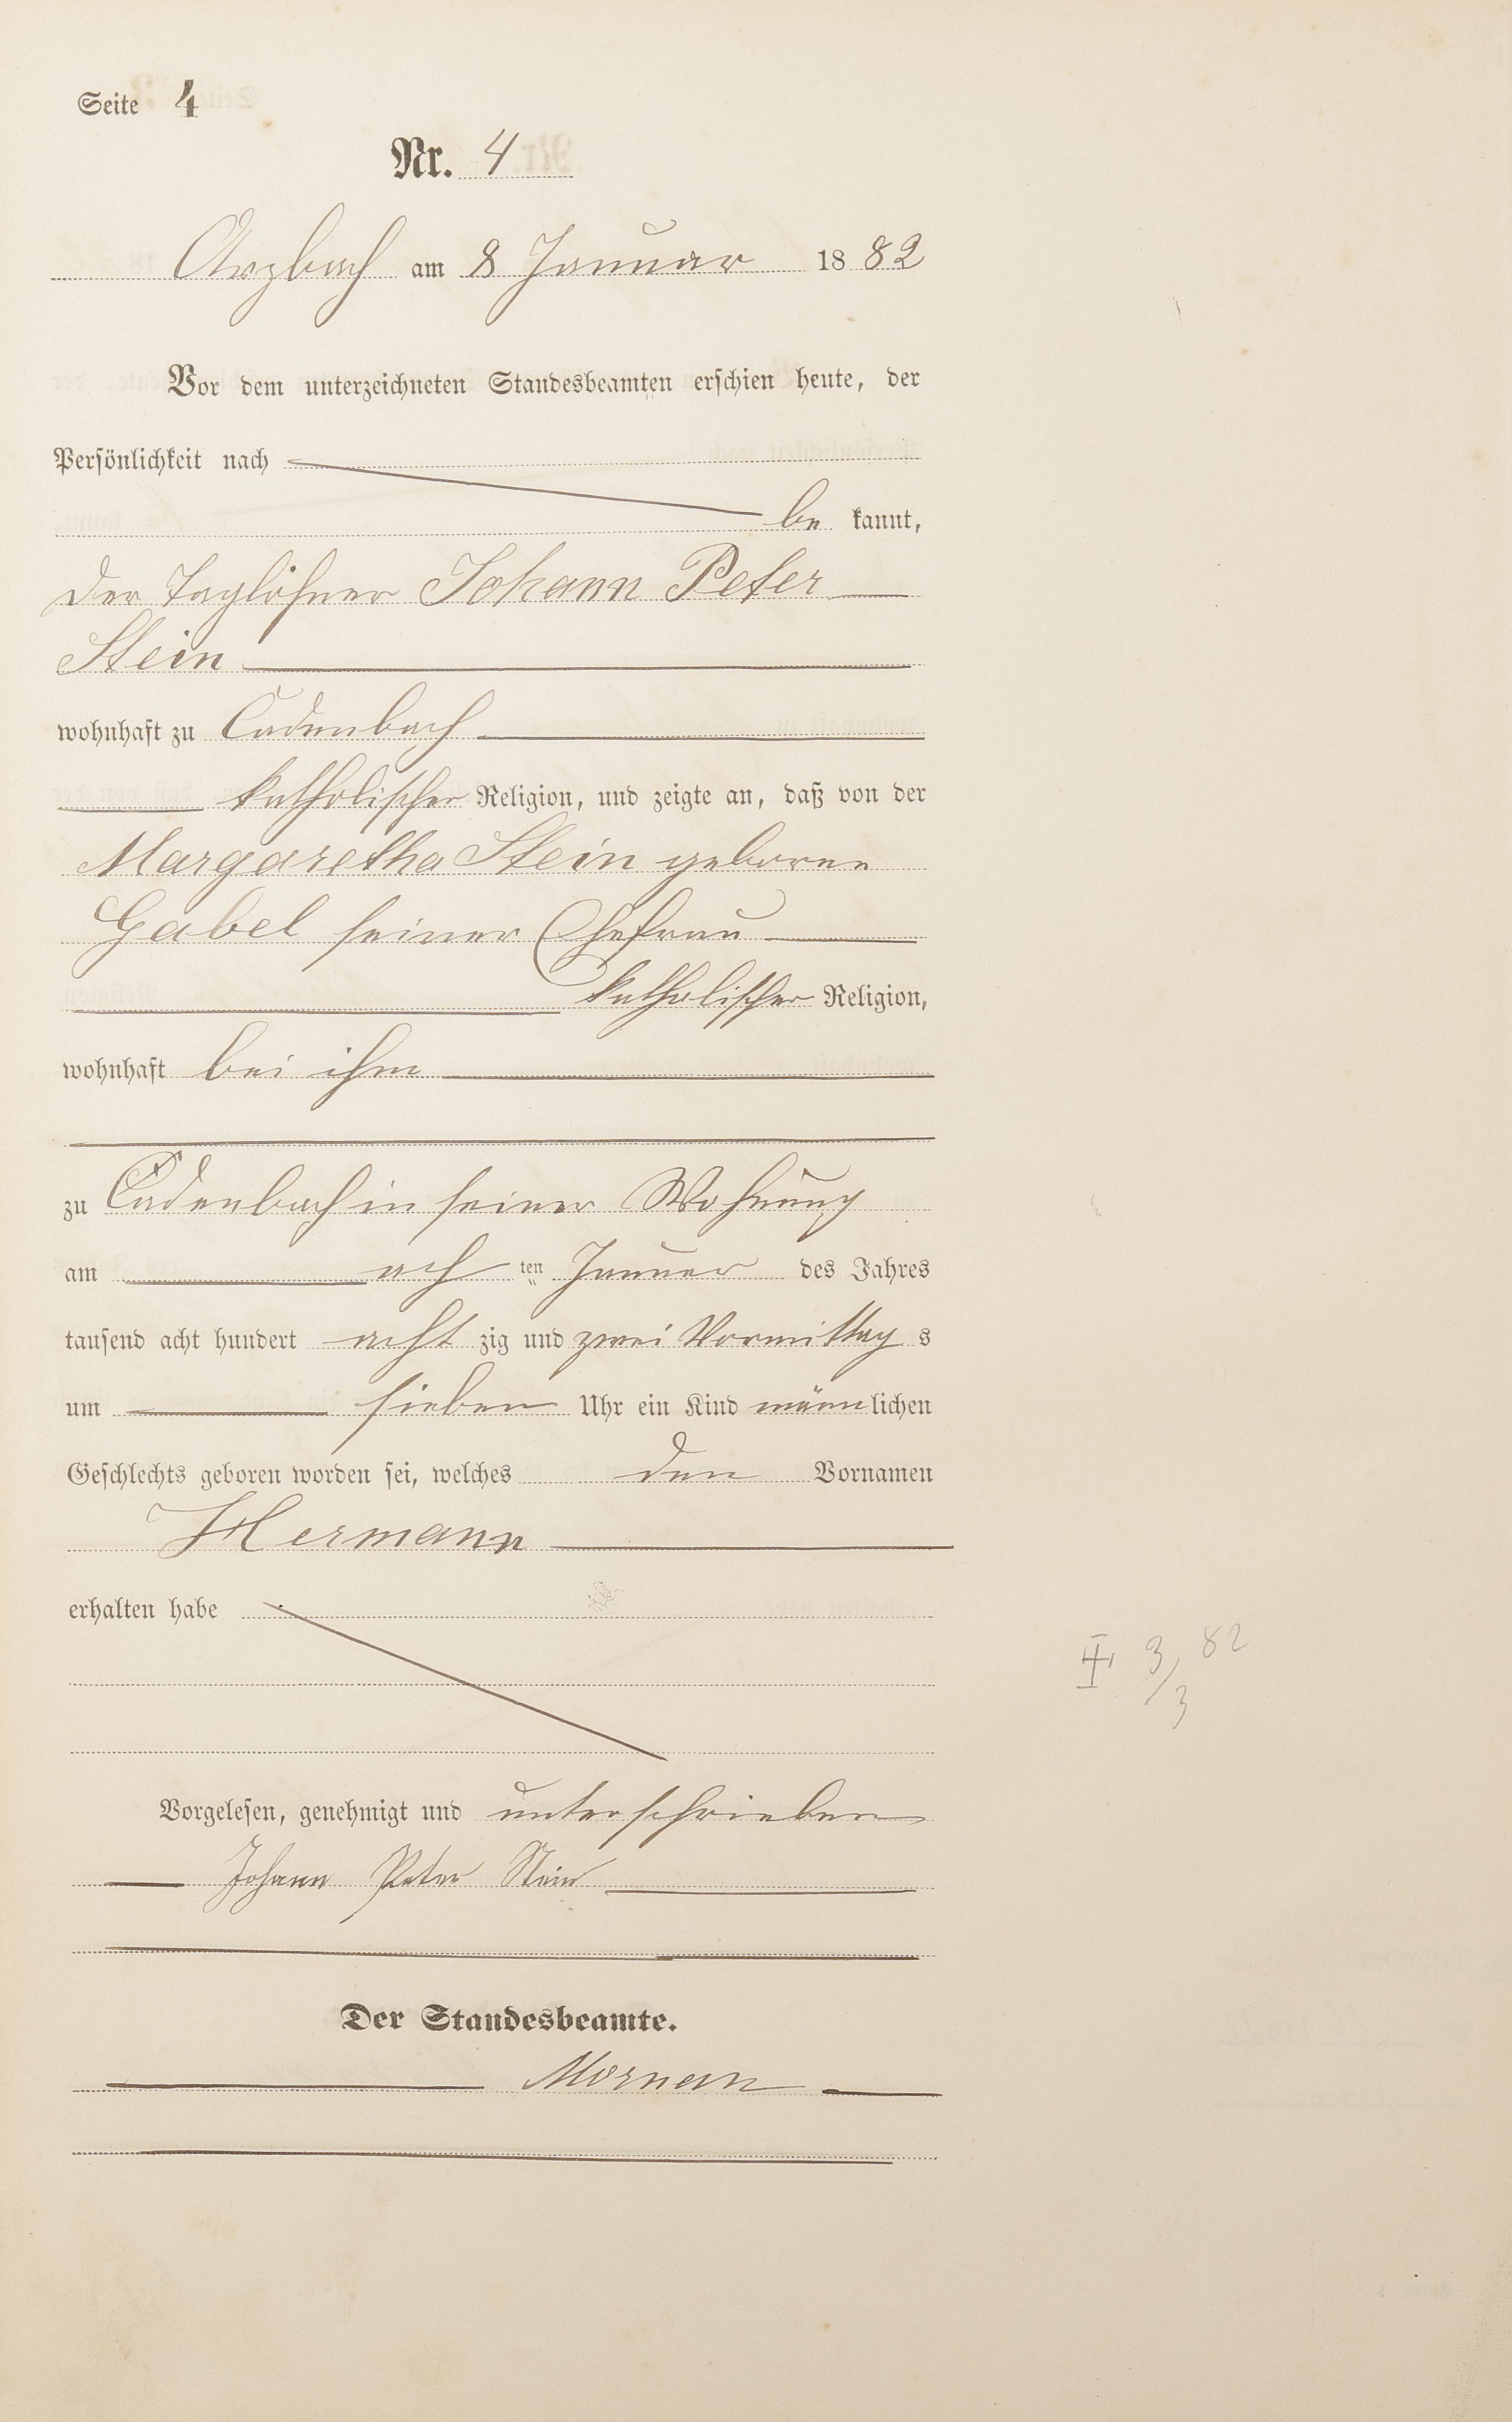 Seite 4
Nr. 4
Arzbach am 8 Januar 1882
Vor dem unterzeichneten Standesbeamten erschien heute, der
Persönlichkeit nach
be kannt,
der Taglöhner Johann Peter
Stein
wohnhaft zu Cadenbach
katholischer Religion, und zeigte an, daß von der
Margaretha Stein geborne
Gabel seiner Ehefrau
katholischer Religion,
wohnhaft bei ihm
zu Cadenbach in seiner Wohnung
am ach ten Januar des Jahres
tausend acht hundert acht zig und zwei Vormittag s
um sieben Uhr ein Kind männlichen
Geschlechts geboren worden sei, welches den Vornamen
Hermann
erhalten habe
Vorgelesen, genehmigt und unterschrieben
Johann Peter Stein
Der Standesbeamte.
3/3 82